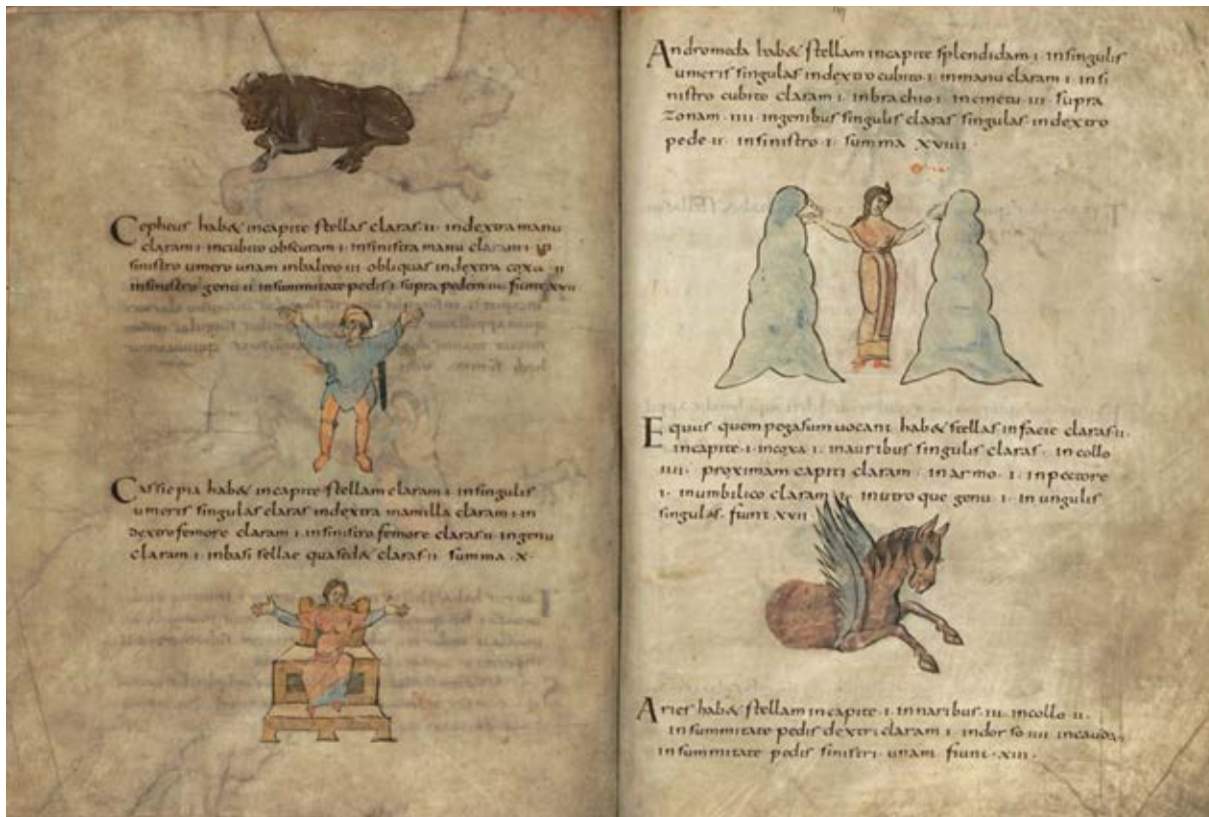 Cepheus hab& incapite stellas claras·ii· indextra manu
claram·i· incubito obscuram·i· insinistra manu claram·i·
sinistro umero unam inbalteo iii· obliquas indextra coxa ·ii
insinistro genu·ii· insummitate pedis·i· supra pedem·iii· fiunt xvii
Cassiepia hab& incapite stellam claram·i· insingulis
umeris singulas claras indextra mamilla claram·i· in
dextro femore claram·i· insinistro femore claras·ii· ingenu
claram·i· inbasi sellae quased& claras·ii· summa ·x·
Andromeda hab& stellam incapite splendidam·i· insingulis
umeris singulas indextro cubito·i· inmanu claram·i· insi
nistro cubito claram·i· inbrachio·i· incinctu·iii· supra
zonam·iiii· ingenibus singulis claras singulas indextro
pede·ii· insinistro·i· summa xviiii·
Equus quem pegasum uocant· hab& stellas infacie claras·ii·
incapite·i· incoxa·i· inauribus singulis claras· incollo
iiii· proximam capiti claram· inarmo·i· inpectore
·i· inumbilico claram·i· inutroque genu·i· in ungulis
singulas· fiunt xvii
Aries hab& stellam incapite·i· innaribus·iii· incollo·ii·
insummitate pedis dextri claram·i· indorso·iiii· incauda·
insummitate pedis sinistri· unam· fiunt·xiii·